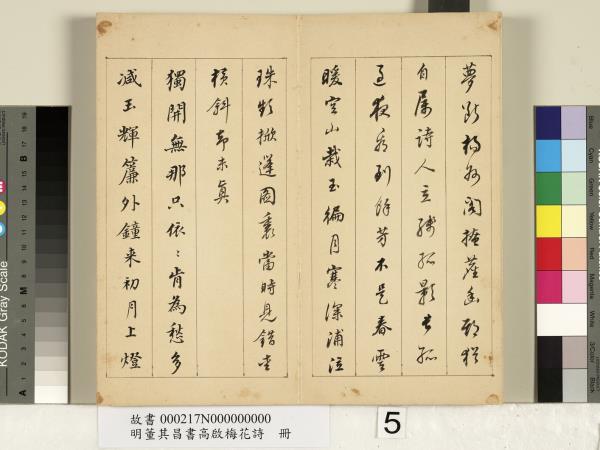 夢斷揚州閣掩塵幽期猶
自屬詩人立殘孤影長孤
過夜看到餘芳不是春雲
暖空山栽玉徧月寒深浦泣
珠頻掀篷圖裏當時見錯愛
橫斜却未真
獨開無那只依〻肯為愁多
减玉輝簾外鐘来初月上燈
故書 000217N000000000
明董其昌書高啟梅花詩 冊
5
KODAK Gray Scale
A 1 2 3 4 5 6 M 8 9 10 11 12 13 14 15 B 17 18 19
Blue
Cyan
Green
Yellow
Red
Magenta
White
3/Color
Black